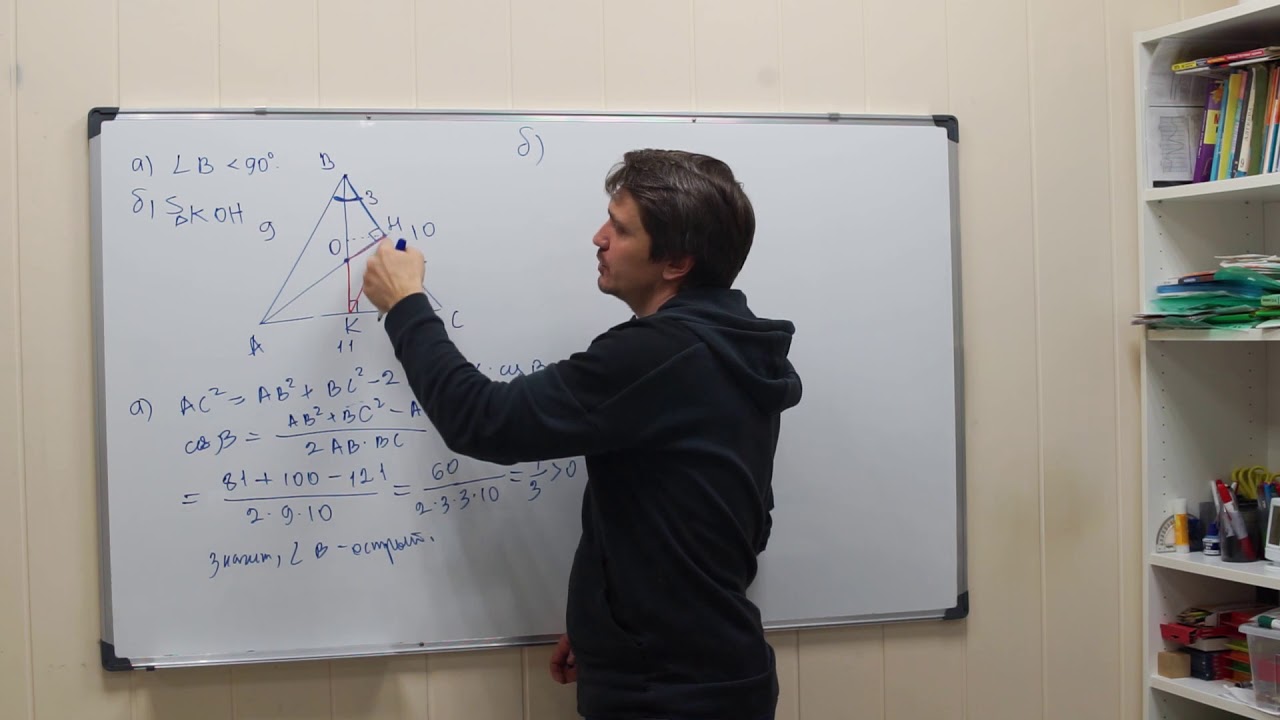 а) ∠B < 90°.
б) S△KOH
б)
B
3
H
9
O
10
A
K
C
11
а) AC² = AB² + BC² - 2 · cos B
cos B = AB² + BC² - A / 2 AB · BC
= 81 + 100 - 121 / 2 · 9 · 10 = 60 / 2 · 3 · 3 · 10 = 1/3 > 0
Значит, ∠B - острый.